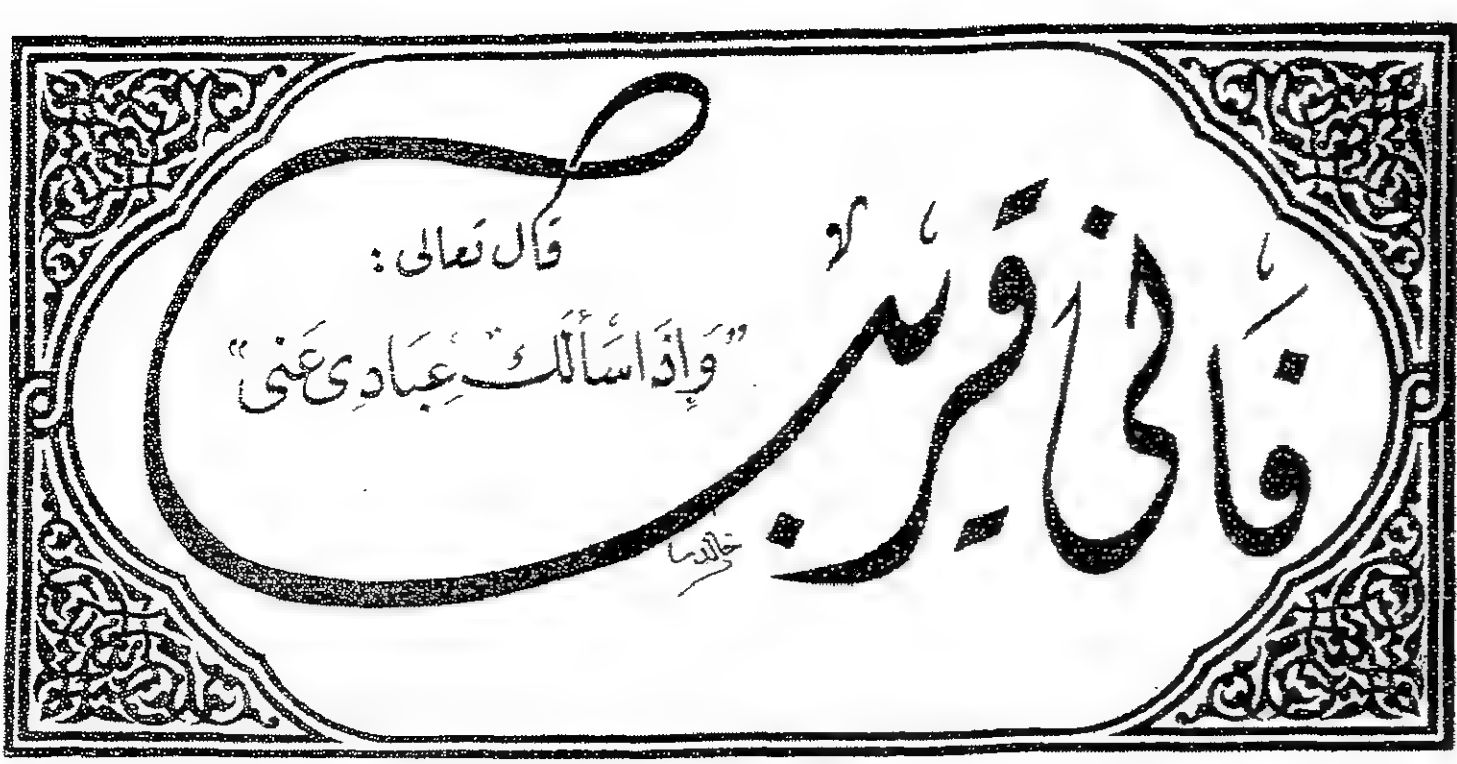 قال تعالى:
"وَإِذَا سَأَلَكَ عِبَادِي عَنِّي"
فَإِنِّي قَرِيبٌ